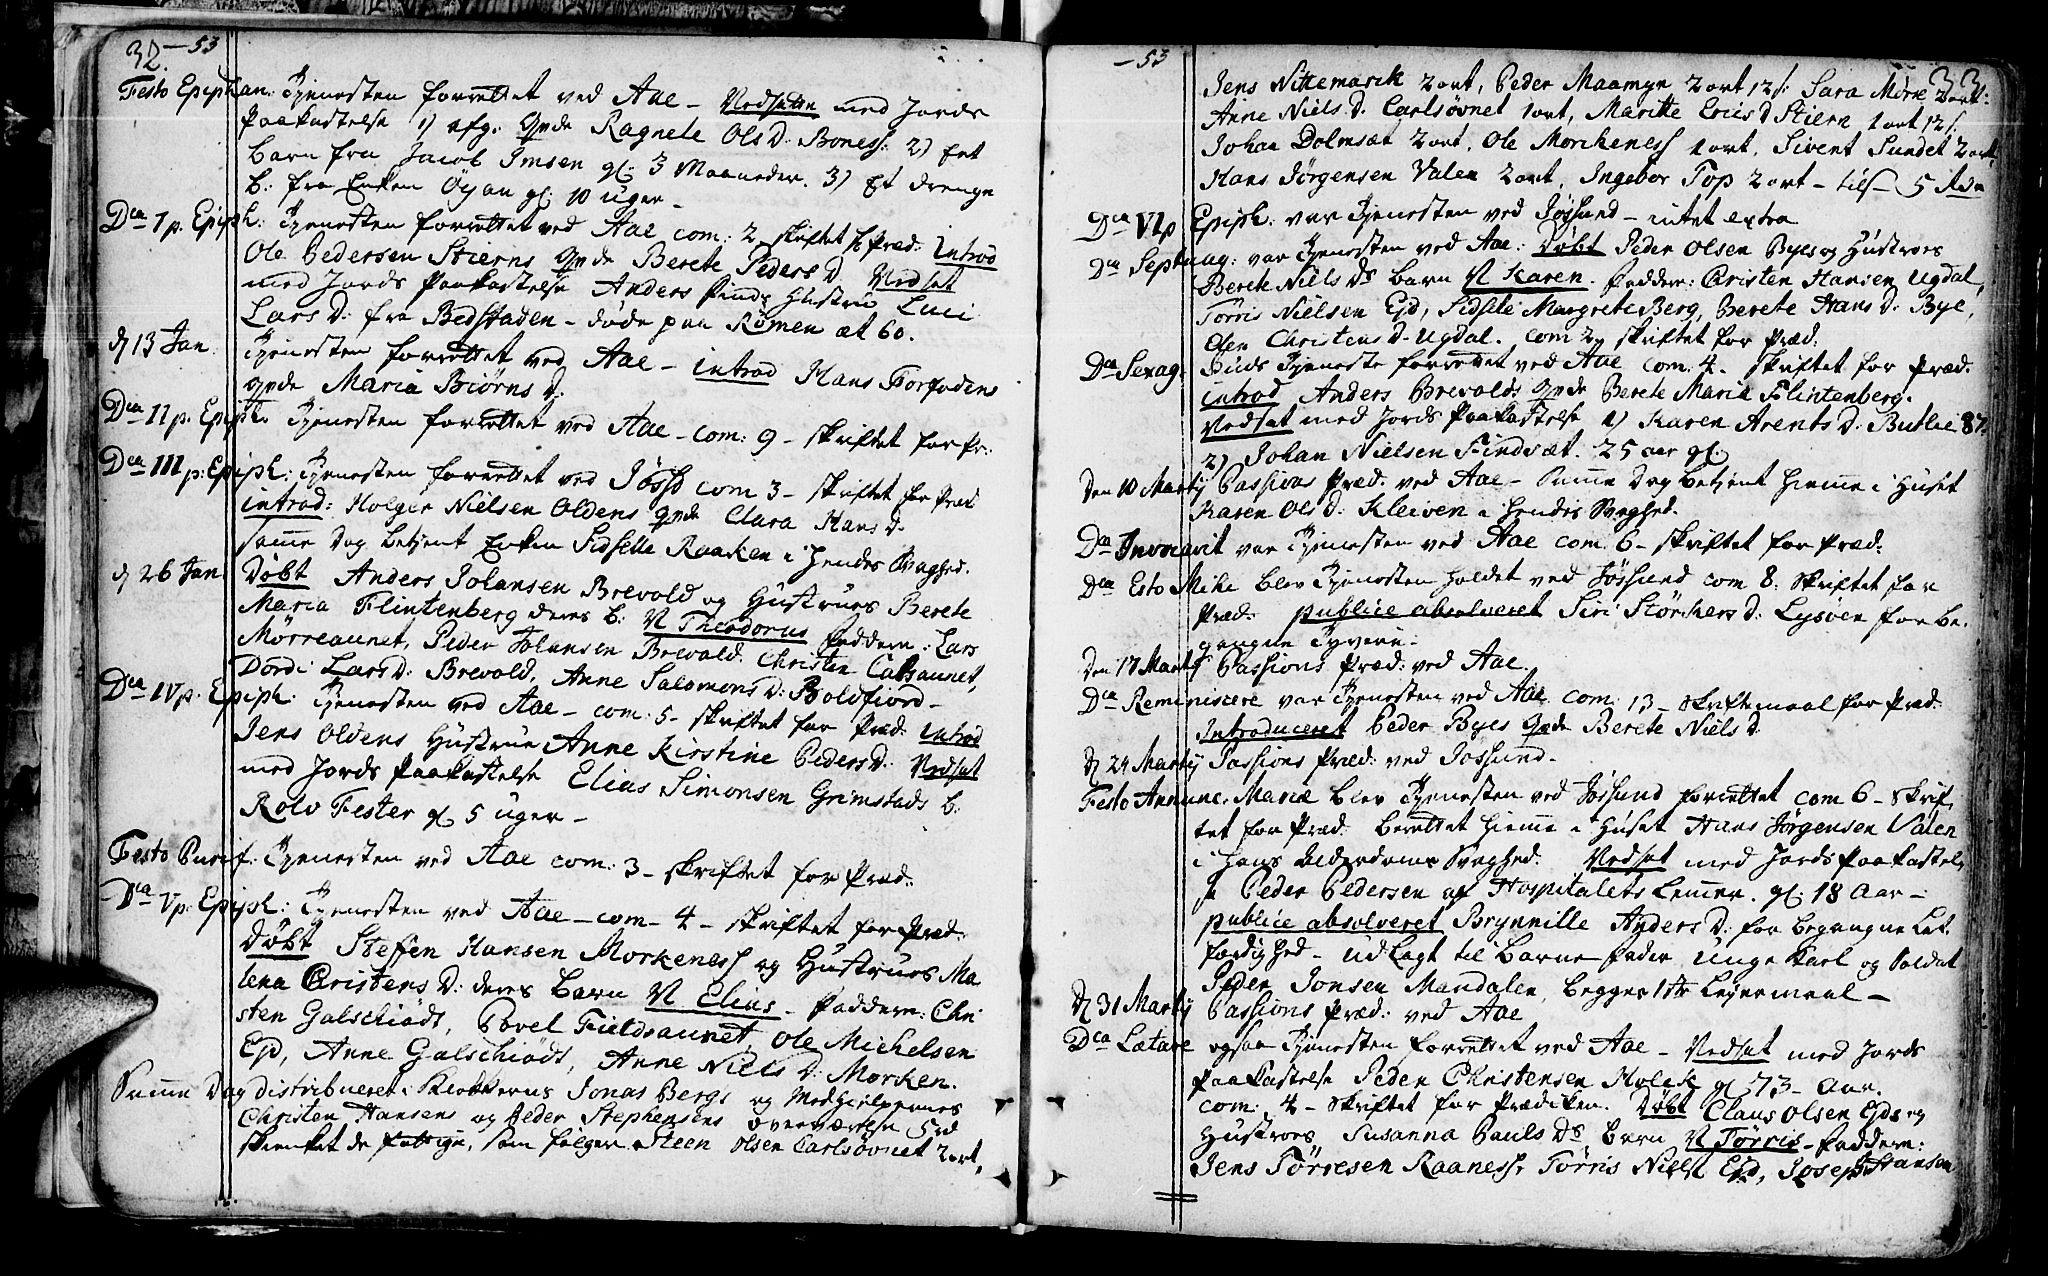 32. -53
Festo Epiphan: Tjenesten forrettet ved Aae - Nedsatte med Jords
Paakastelse 1) afg: Qvde Ragnete Ols D: Boness: 2) Et
Barn fra Jacob Imsen gl: 3 Maaneder. 3) Et drenge
b: fra Enken Öyan gl: 10 uger -
Dca 1 p. Epiph: Tjenesten forrettet ved Aae com: 2 skriftet f Præd: Introd
Ole Pedersen Stierns Qvde Berete Peders D. Nedsat
med Jords Paakastelse Anders Hustru Luci
Lars D: fra Bedstaden - døde paa Römen æt 60.
d 13 Jan. Tjenesten forrettet ved Aae - introd Hans Torfindens
Qvde Maria Biörns D:
Dca II p: Epiph: Tjenesten forrettet ved Aae - com: 9 - skriftet for Pr:
Dca III p: Epiph: Tjenesten forrettet ved Jössd com 3 - skriftet for Præd
introd: Holger Nielsen Oldens Qvde Clara Hans D.
samme Dag betjent Enken Sidselle Raaken i hendes Svaghed.
d 26 Jan: Döbt Anders Johansen Brevold og Hustrues Berete
Maria Flintenberg deres b: N Theodorus Faddere: Lars
Mörreaunet, Peder Johansen Brevold. Christen Calsaunet,
Dordi Lars D: Brevold, Anne Salomons D: Boldfiord -
Dca IV p: Epiph: Tjenesten ved Aae - com: 5 - skriftet for Præd. introd
Jens Oldens Hustrue Anne Kirstine Peders D: Nedsat
med Jords Paakastelse Elias Simonsen Grimstads b:
Rolv Fester gl 5 uger -
Festo Purif: Tjenesten ved Aae com: 3 - skriftet for Præd:
Dca V p: Epiph: Tjenesten ved Aae - com - 4 - skriftet for Præd:
Döbt Steffen Hansen Morkeness og Hustrues Ma
lena Christens D: deres Barn N Elias - Faddere: Chri
sten Galschiödt, Povel Fieldsaunet, Ole Michelsen
Ejd, Anne Galschiödt, Anne Niels D: Morken.
Samme Dag distribueret i Klokkerens Jonas Bergs og Medhjelpernes
Christen Hansens og Peder Stephensens overværelse 5 rd
skienket de fattige, som følger Steen Olsen Carlsövnet 2 ort,
-53 33.
Jens Nittemarik 2 ort, Peder Maamyn 2 ort 12 s: Sara Mörne 2 ort:
Anne Niels D. Carlsövnet 1 ort, Maritte Erics D Stiern 1 ort 12 s:
Johan Dolmsæt 2 ort, Ole Morkeness 1 ort, Sivert Sundet 2 ort,
Hans Jörgensen Valen 2 ort, Ingebor Top 2 ort - tils - 5 Rdr
Dca VI p Epiph: var Tjenesten ved Jössund - intet extra
Dca Septuag: var Tjenesten ved Aae: Döbt Peder Olsen Byes og Hustroes
Berete Niels Ds barn N Karen. Faddere: Cristen Hansen Ugdal,
Törris Nielsen Ejd, Sidsele Margrete Berg, Berete Hans D: Bye,
Elen Christens D. Ugdal. com 2 skriftet for Præd:
Dca Sexag: Guds Tjeneste forrettet ved Aae com: 4 - skriftet for Præd:
introd Anders Brevolds Qvde Berete Maria Flintenberg.
Nedsat med Jords Paakastelse 1) Karen Arents D: Butlie 87.
2) Johan Nielsen Findsæt. 25 aar gl:
Den 10 Martij Passions Præd: ved Aae - Samme Dag betjent hiemme i Huset
Karen Ols D: Kleiven i hendes Svaghed.
Dca Invocavit var Tjenesten ved Aae com: 6 - skriftet for Præd:
Dca Esto Mihi blev Tjenesten holdet ved Jössund com 8: skriftet for
Præd: publice absolveret Siri Störkers D: Lysöen for be-
gangne Tyverie.
Den 17 Martij Passions Præd: ved Aae
Dca Reminiscere var Tjenesten ved Aae com: 13 - Skriftemaal for Præd.
Introduceret Peder Byes Qvde Berete Niels D.
d 24 Martij Passions Præd: ved Jössund -
Festo Annunc. Mariæ blev Tjenesten ved Jössund forrettet com 6 - skrif
tet for Præd: berettet hiemme i Huset Hans Jörgensen Valen
i hans Alderdoms Svaghed. Nedsat med Jords Paakastel
se Peder Pedersen af Hospitalets Lemmer. gl: 18 Aar -
publice absolveret Brynnille Anders D: for begangne Let
færdighed - Udlagt til Barne fader unge Karl og Soldat
Peder Jonsen Mandalen, begges 1ste Leyermaal -
d 31 Martij Passions Præd: ved Aae
Dca Lætare ogsaa Tjenesten forrettet ved Aae - Nedsat med Jords
Paakastelse Peder Christensen Holck gl 73 - Aar.
com: 4 - skriftet for Prædiken. Döbt Claus Olsen Ejds og
Hustroes Susanna Pauls Ds barn N Törris - Faddere:
Jens Törresen Raaness, Törris Niels: Ejd, Joseph Hansen